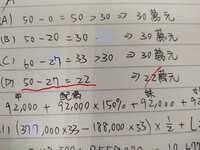 (A) 50-0=50>30 ⇒ 30萬元
(B) 50-20=30 ⇒ 30萬元
(C) 60-27=33>30 ⇒ 30萬元
(D) 50-27=22 ⇒ 22萬元
92,000+92,000×150%+92,000+92
(377,000×33-188,000×33)×1/2+